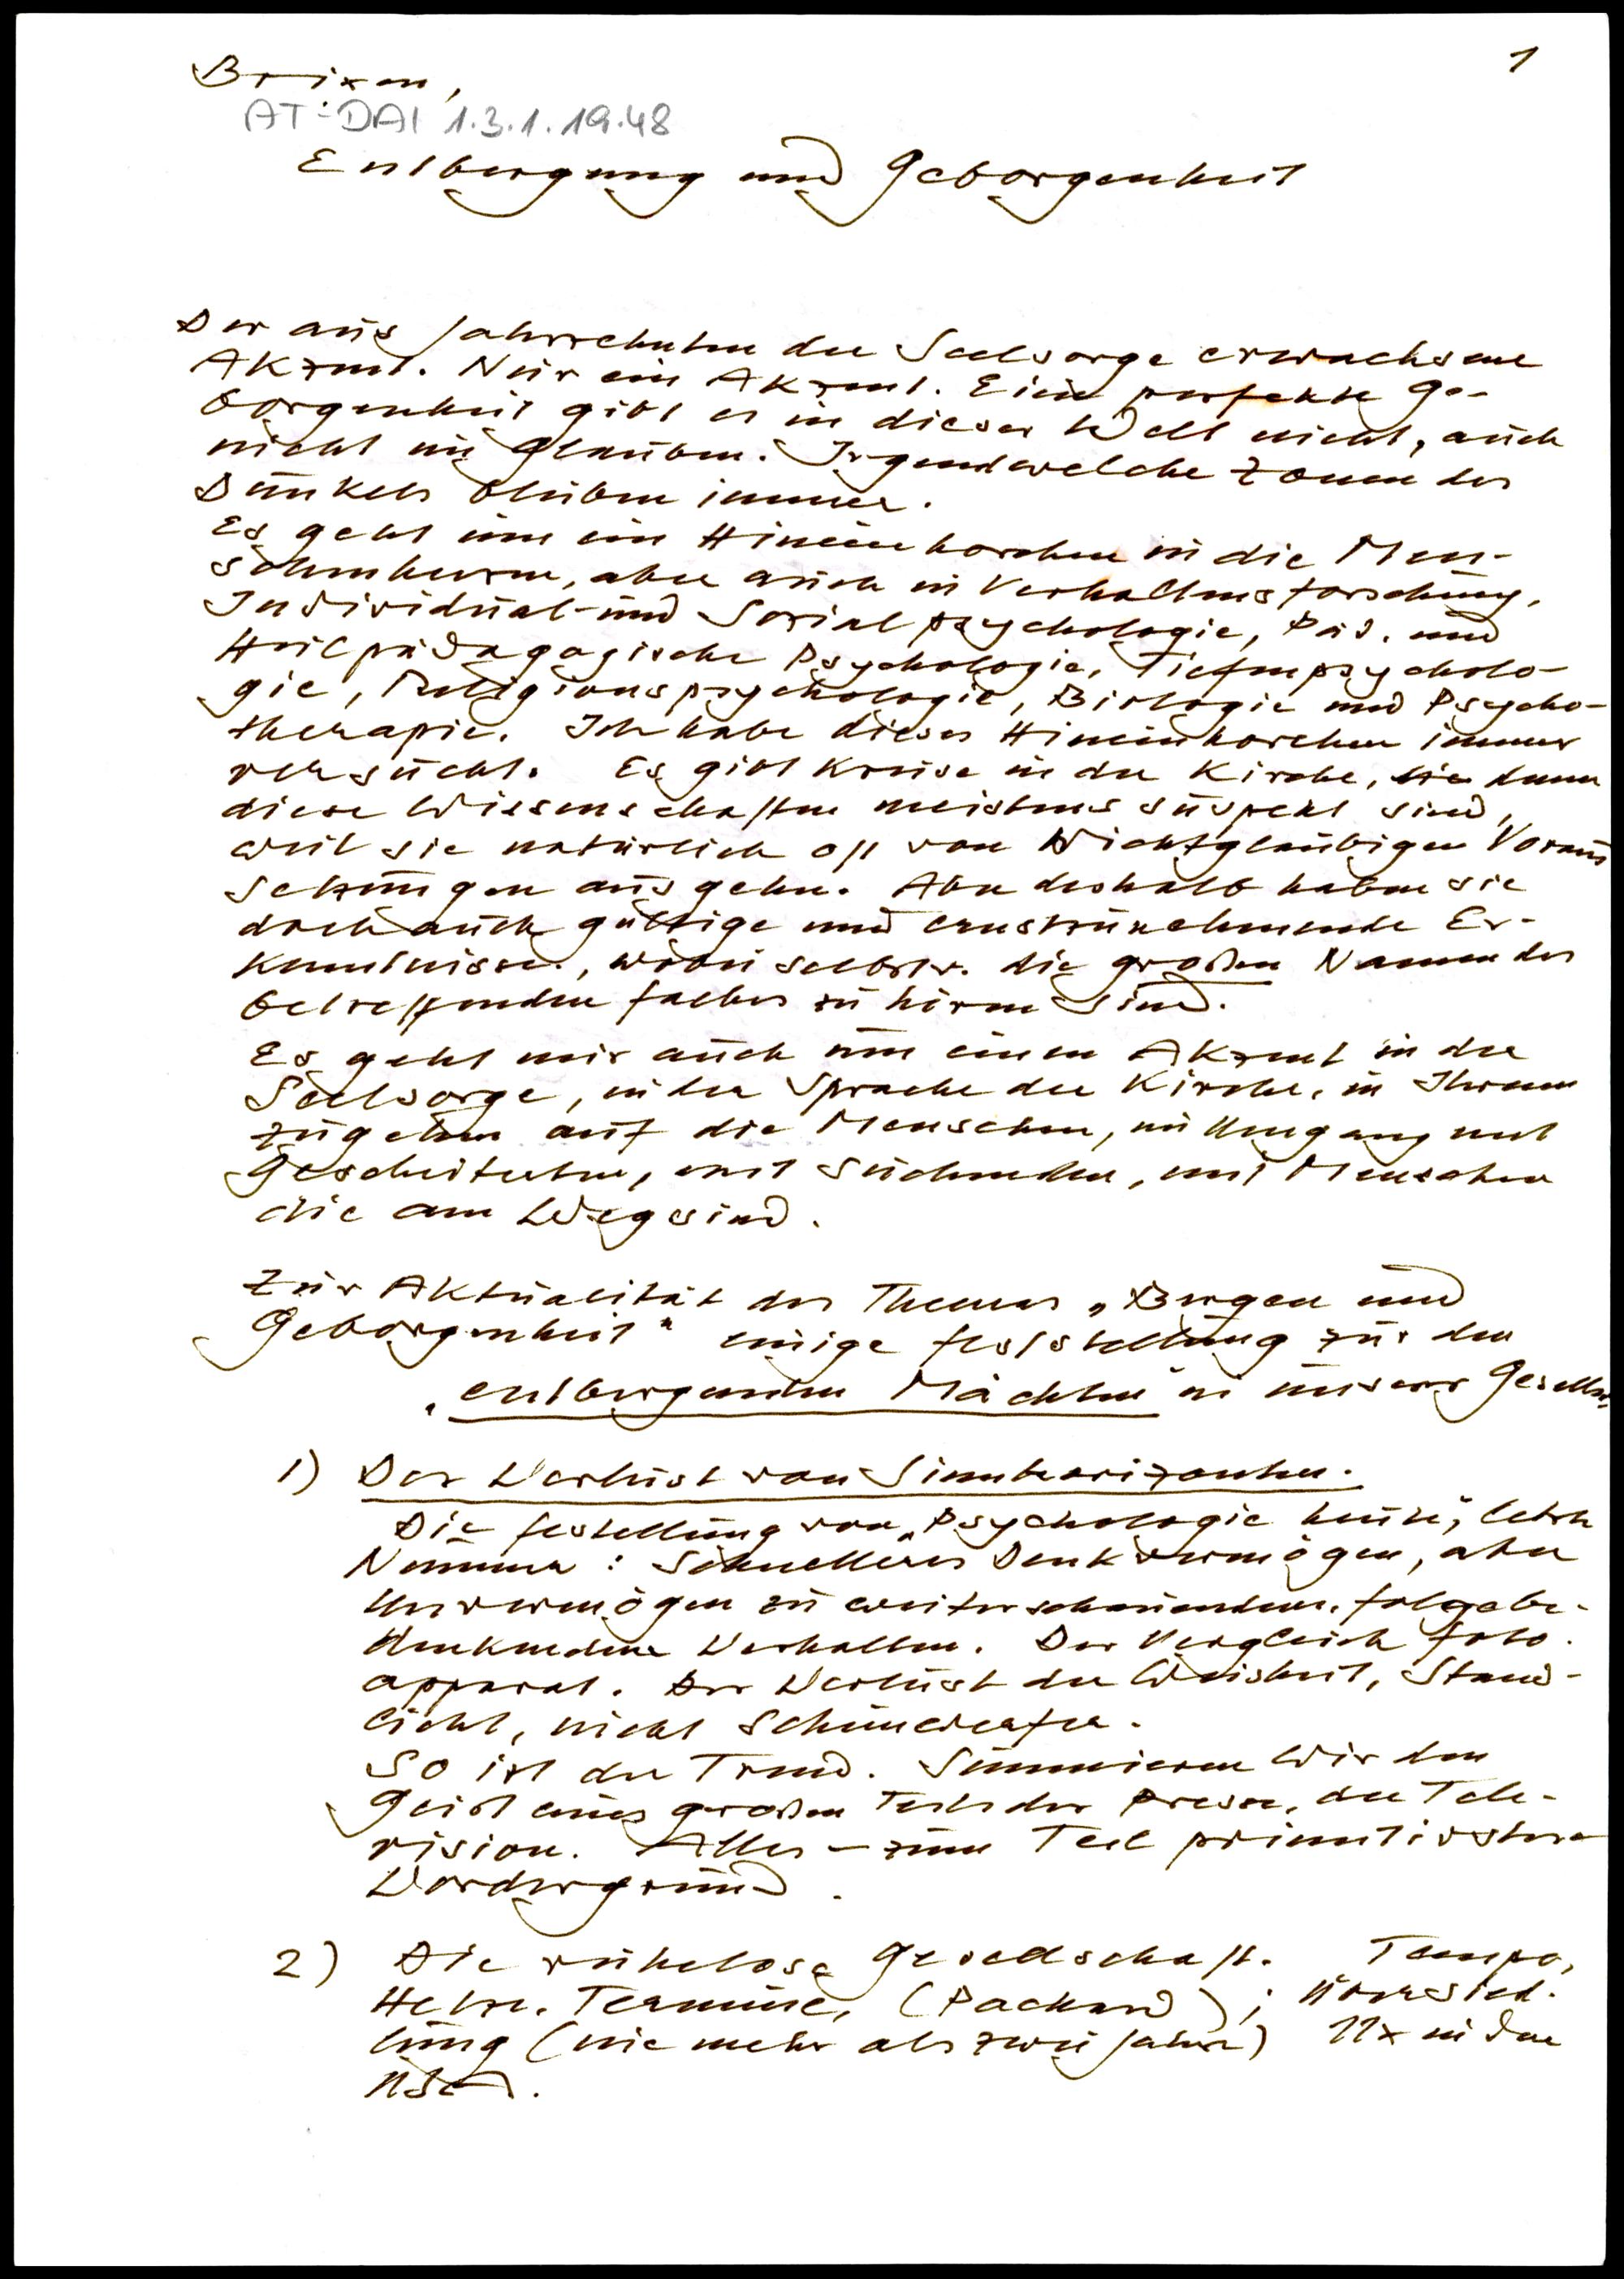 1
Brixen,
AT-DAI 1.3.1.19.48
Entbergung und Geborgenheit
Der aus Jahrzehnten der Seelsorge erwachsene
Akzent. Nur ein Akzent. Eine perfekte Ge-
borgenheit gibt es in dieser Welt nicht, auch
nicht im Glauben. Irgendwelche Zonen des
Dunkels bleiben immer.
Es geht um ein Hineinhorchen in die Men-
schenherzen, aber auch in Verhaltensforschung,
Individual- und Sozialpsychologie, Päd. und
Heilpädagogische Psychologie, Tiefenpsycholo-
gie, Religionspsychologie, Biologie und Psycho-
therapie. Ich habe dieses Hineinhorchen immer
versucht. Es gibt Kreise in der Kirche, denen
diese Wissenschaften meistens suspekt sind,
weil sie natürlich oft von Nichtgläubigen Voraus
setzungen ausgehen. Aber deshalb haben sie
doch auch gültige und ernstzunehmende Er-
kenntnisse, wobei selbstv. die großen Namen des
betreffenden Faches zu hören sind.
Es geht mir auch um einen Akzent in der
Seelsorge, in der Sprache der Kirche, in Ihrem
Zugehen auf die Menschen, im Umgang mit
Gescheiterten, mit Suchenden, mit Menschen
die am Weg sind.
Zur Aktualität des Themas „Bergen und
Geborgenheit" einige Feststellung zur den
„entbergenden Mächten in unserer Gesellsch.
1) Der Verlust von Sinnhorizonten.
Die Festellung von „Psychologie heute", letzte
Nummer: Schnelleres Denkvermögen, aber
Unvermögen zu weiterschauendem, folgebe-
denkendem Verhalten. Der Vergleich Foto-
apparat. Der Verlust der Weisheit, Stand-
licht, nicht Scheinwerfer.
So ist der Trend. Summieren wir den
Geist eines großen Teils der Presse, der Tele-
vision. Alles – zum Teil primitivster
Vordergrund.
2) Die ruhelose Gesellschaft. Tempo,
Hetze. Termine, (Packard); Übersied-
lung (nie mehr als zwei Jahre) 11x in den
USA.